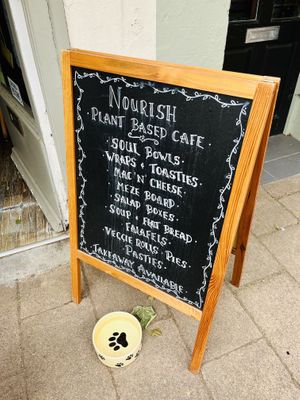 NOURISH
PLANT BASED CAFE
SOUL BOWLS.
WRAPS + TOASTIES.
MAC 'N' CHEESE.
MEZE BOARD.
SALAD BOXES.
SOUP + FLAT BREAD.
FALAFELS.
VEGGIE ROLLS. PIES.
PASTIES.
TAKEAWAY AVAILABLE.